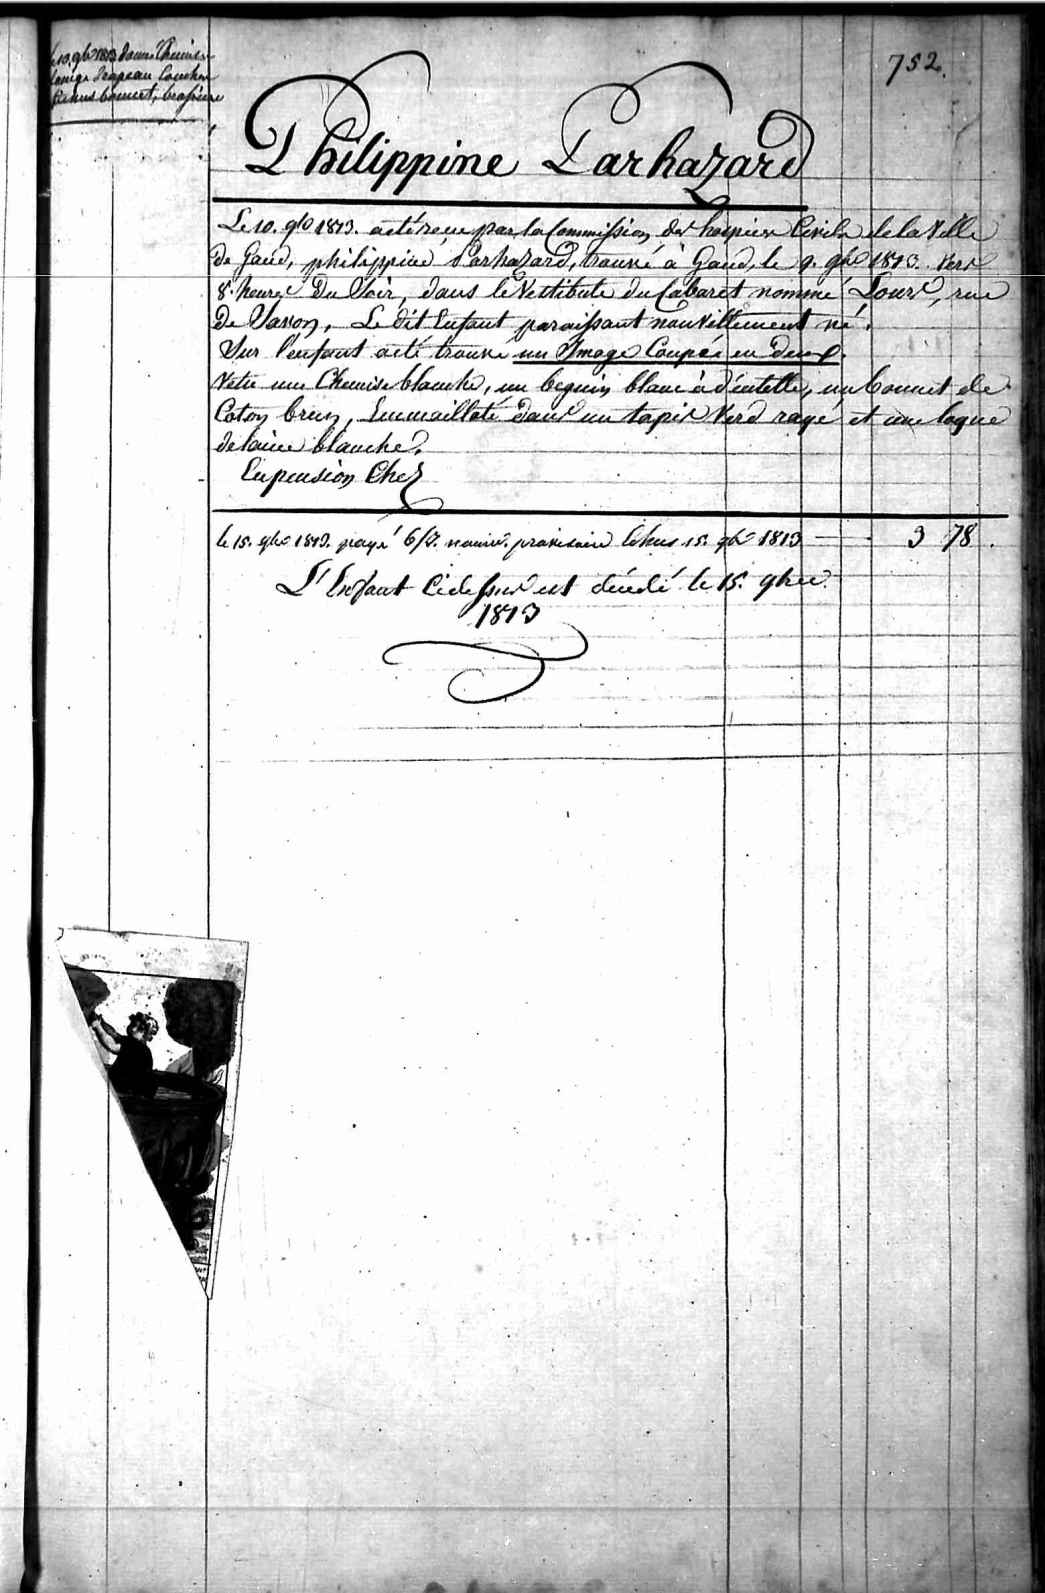 752.
le 10. 9bre 1813 donné Chemise
Lange drapeau Couche
fichus bonnet, brassière
Philippine Parhazard
Le 10. 9bre 1813. a été reçue par la Commission des hospices Civils de la Ville
De Gand, philippine Parhazard, trouvé à Gand, le 9. 9bre 1813. Vers
8. heures Du Soir, dans le Vestibule du Cabaret nommé Lours, rue
De Savon. Le dit Enfant paraissant nouvellement né.
Sur l'enfant a été trouvé un Image Coupée en deux.
Vetu une Chemise blanche, un beguin blanc à dentelle, un bonnet de
Coton brun, Emmailloté dans un tapis Verd rayé et une loque
de laine blanche.
En pension Chez
le 15. 9bre 1813. payé 6/7. nourrice. provisoire Echus 15. 9bre 1813 3 78.
L'Enfant Cidessus est décédé le 15. 9bre
1813